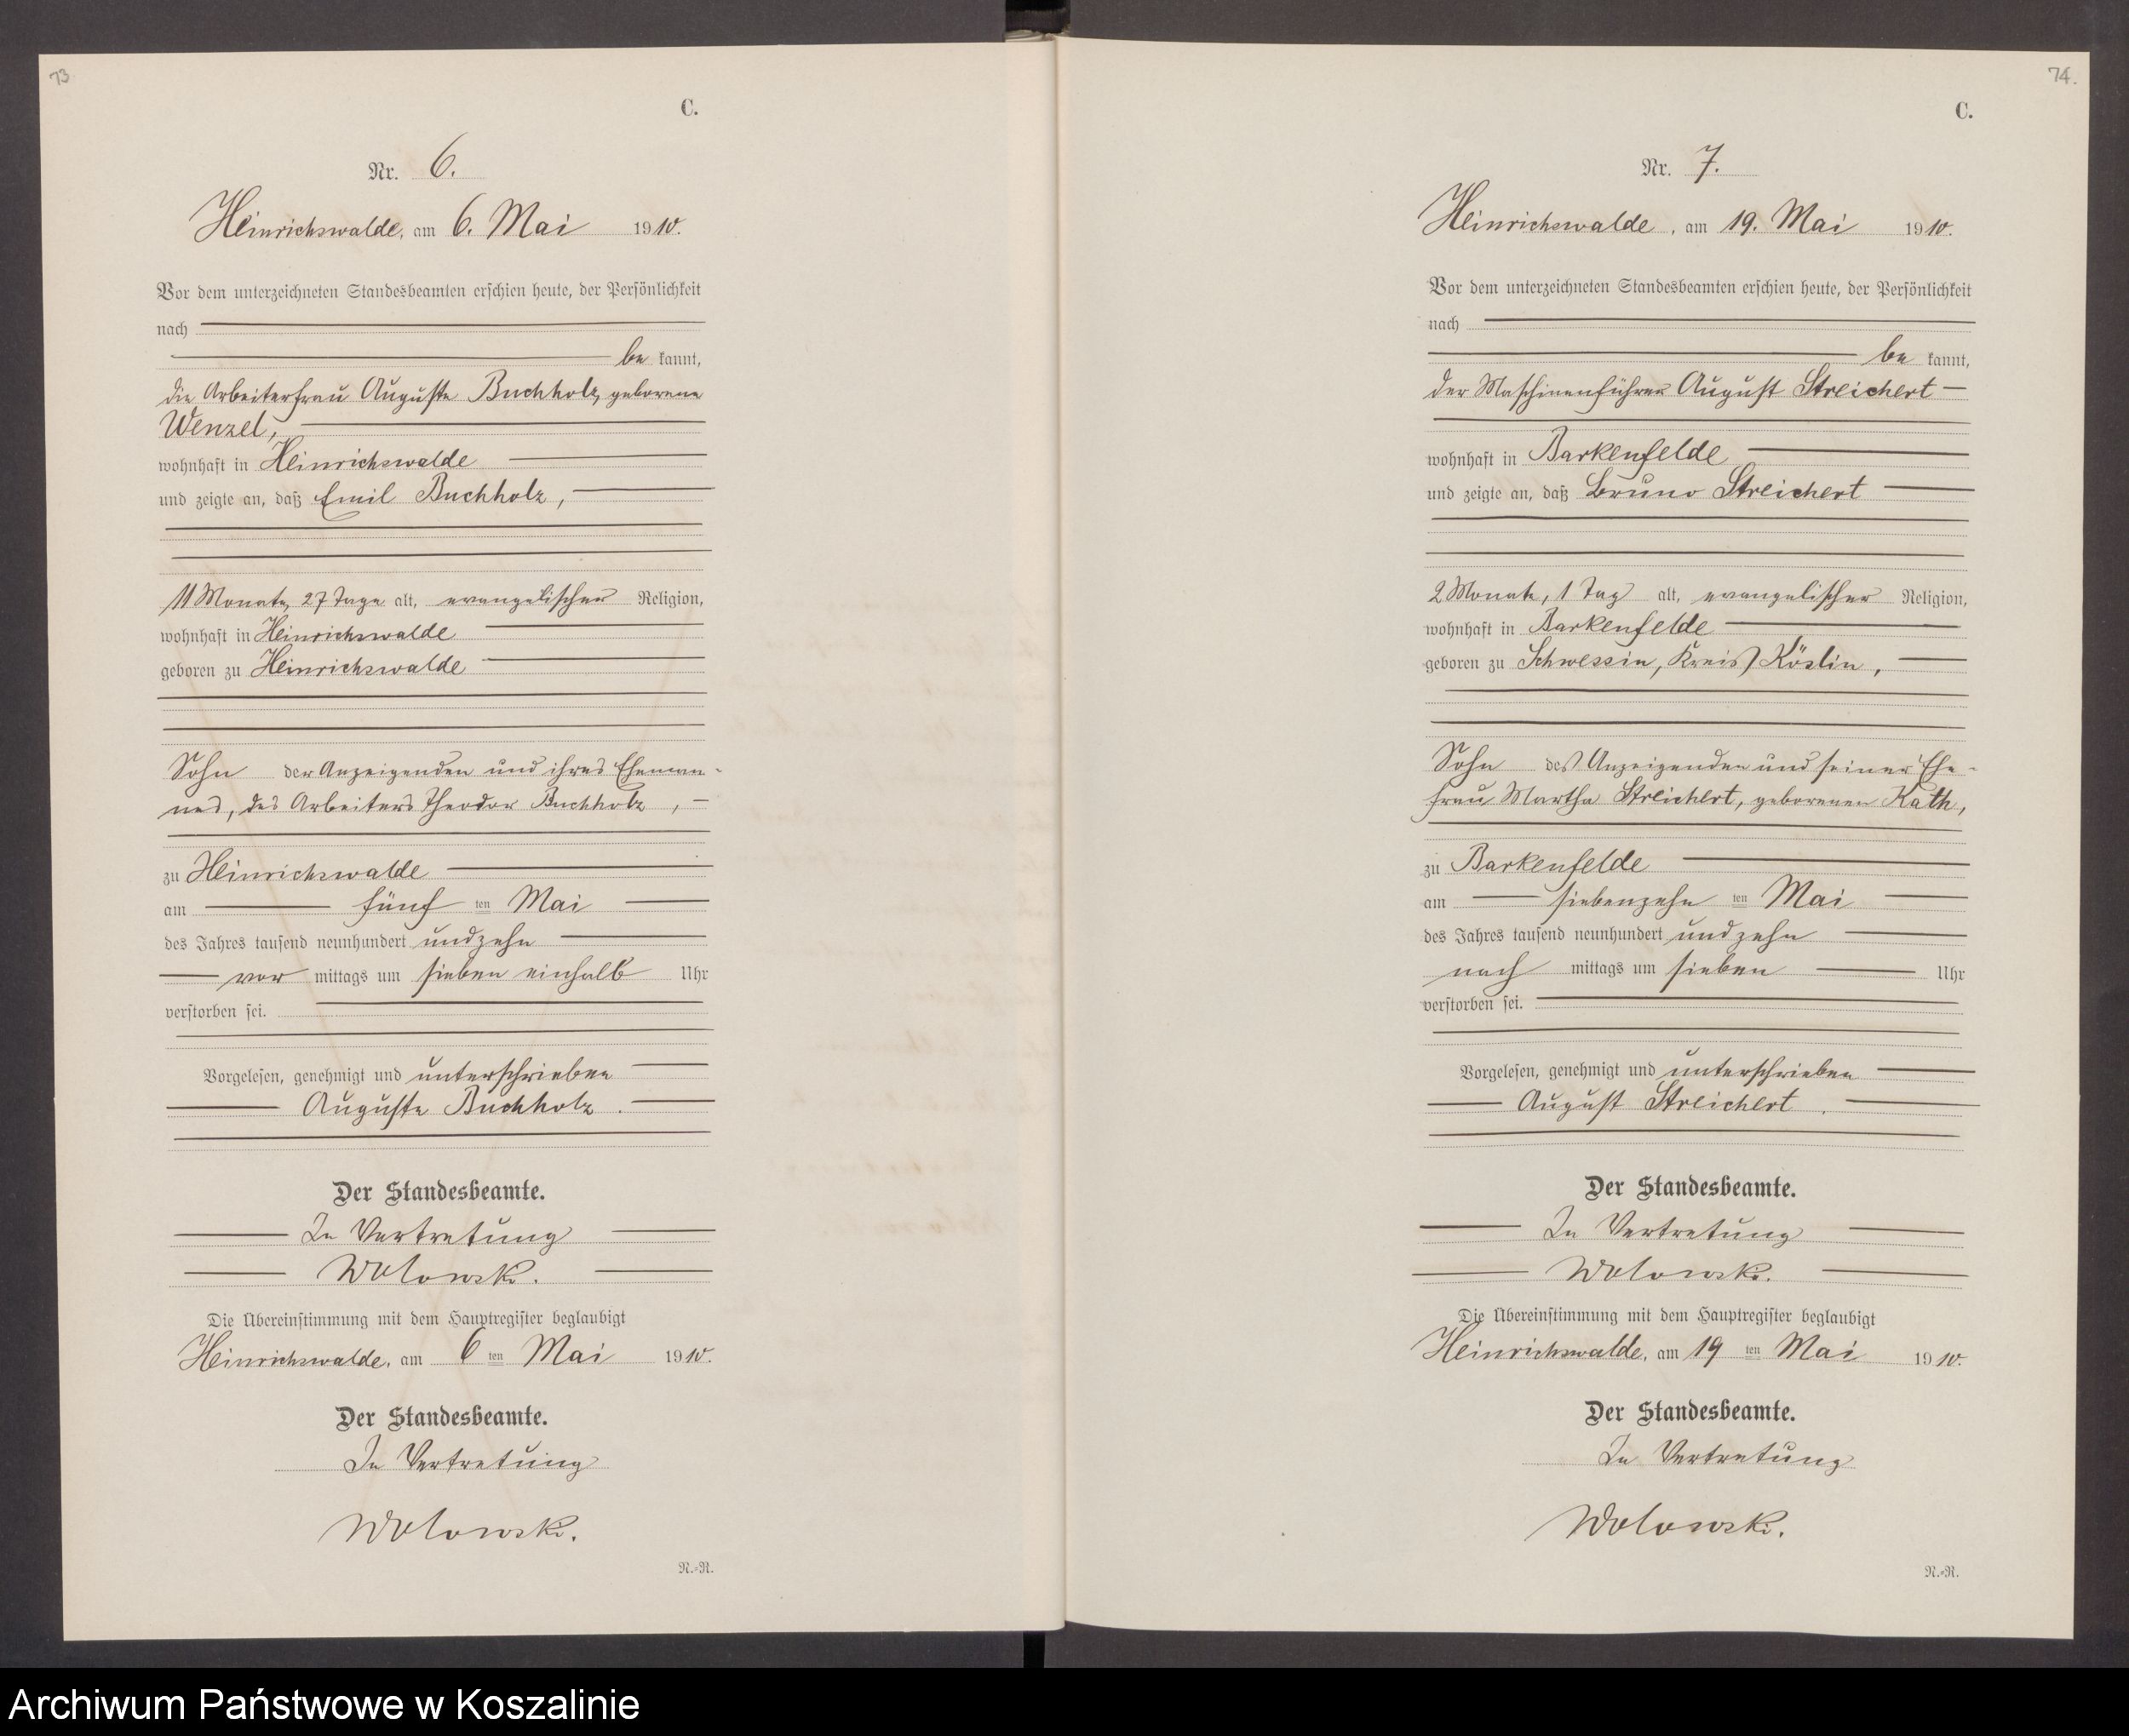 73
C.
Nr. 6.
Heinrichswalde, am 6. Mai 1910.
Vor dem unterzeichneten Standesbeamten erschien heute, der Persönlichkeit
nach
be kannt,
die Arbeiterfrau Auguste Buchholz, geborene
Wenzel,
wohnhaft in Heinrichswalde
und zeigte an, daß Emil Buchholz,
11 Monate, 27 Tage alt, evangelischer Religion,
wohnhaft in Heinrichswalde
geboren zu Heinrichswalde
Sohn der Anzeigenden und ihres Eheman-
nes, des Arbeiters Theodor Buchholz,
zu Heinrichswalde
am fünf ten Mai
des Jahres tausend neunhundert undzehn
vor mittags um sieben einhalb Uhr
verstorben sei.
Vorgelesen, genehmigt und unterschrieben
Auguste Buchholz.
Der Standesbeamte.
In Vertretung
Wolowski.
Die Übereinstimmung mit dem Hauptregister beglaubigt
Heinrichswalde, am 6 ten Mai 1910.
Der Standesbeamte.
In Vertretung
Wolowski.
N.=R.
74.
C.
Nr. 7.
Heinrichswalde, am 19. Mai 1910.
Vor dem unterzeichneten Standesbeamten erschien heute, der Persönlichkeit
nach
be kannt,
der Maschinenführer August Streichert
wohnhaft in Barkenfelde
und zeigte an, daß Bruno Streichert
2 Monate, 1 Tag alt, evangelischer Religion,
wohnhaft in Barkenfelde
geboren zu Schwessin, Kreis Köslin,
Sohn des Anzeigenden und seiner Ehe-
frau Martha Streichert, geborenen Kath,
zu Barkenfelde
am siebenzehn ten Mai
des Jahres tausend neunhundert undzehn
nach mittags um sieben Uhr
verstorben sei.
Vorgelesen, genehmigt und unterschrieben
August Streichert.
Der Standesbeamte.
In Vertretung
Wolowski.
Die Übereinstimmung mit dem Hauptregister beglaubigt
Heinrichswalde, am 19 ten Mai 1910.
Der Standesbeamte.
In Vertretung
Wolowski.
N.=R.
Archiwum Państwowe w Koszalinie